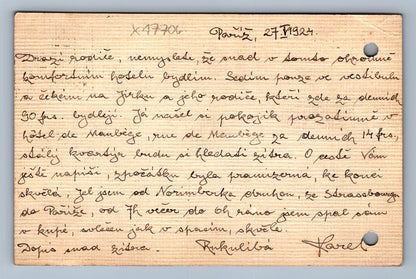 X17706
Paříž, 27.V.1924.
Drazí rodiče, nemyslete, že snad v tomto ohromně
komfortním hotelu bydlím. Sedím pouze ve vestibulu
a čekám na Jirku a jeho rodiče, kteří zde za denních
90 frs. bydlejí. Já našel si pokojík prozatímně v
hôtel de Maubège, rue de Maubège za denních 14 frs,
stálý kvartýr budu si hledati zítra. O cestě Vám
ještě napíši, zpočátku byla pramizerná, ke konci
skvělá. Jel jsem od Norimberka druhou, ze Strassbourgu
do Paříže, od 7h večer do 6h ráno jsem spal sám
v kupé, svlečen jak v spacím, skvěle.
Dopis snad zítra. Rukulíbá Karel